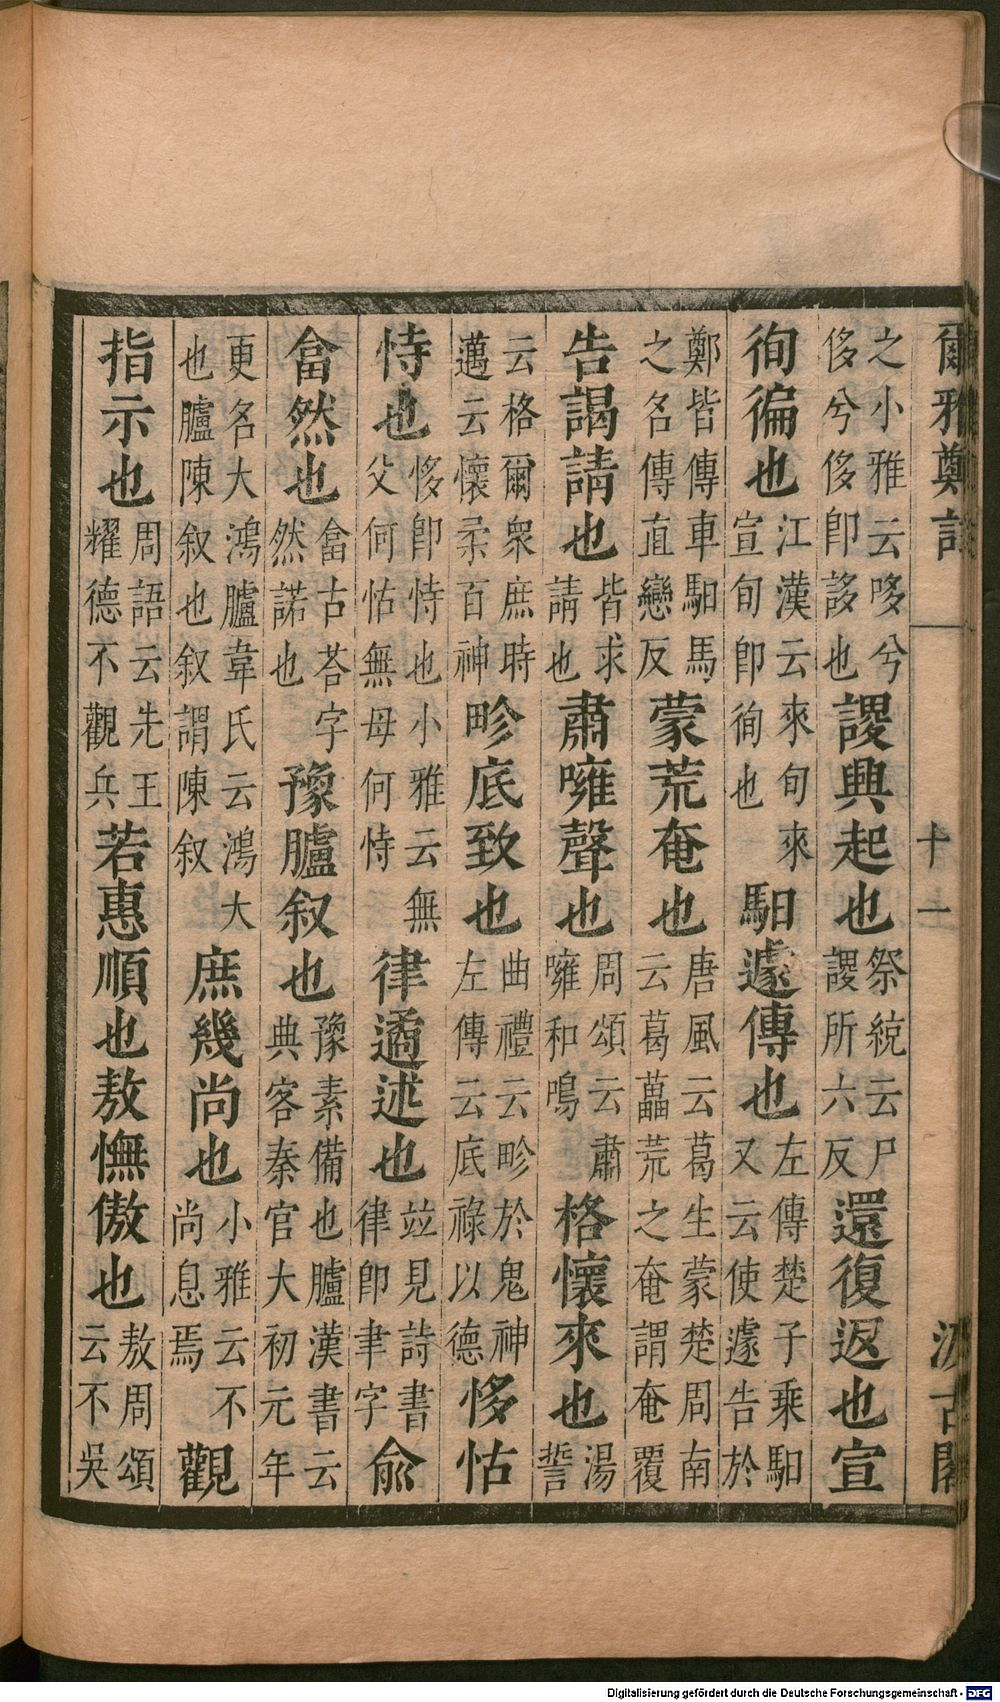 爾雅鄭註 十一 汲古閣
之小雅云哆兮侈兮侈卽誃也謖興起也祭統云尸謖所六反還復返也宣
徇徧也江漢云來旬來宣旬卽徇也馹遽傳也左傳楚子乘馹又云使遽告於
鄭皆傳車馹馬之名傳直戀反蒙荒奄也唐風云葛生蒙楚周南云葛藟荒之奄謂奄覆
告謁請也皆求請也肅噰聲也周頌云肅噰和鳴格懷來也湯誓
云格爾衆庶時邁云懷柔百神畛底致也曲禮云畛於鬼神左傳云底祿以德恀怙
恃也恀卽恃也小雅云無父何怙無母何恃律遹述也竝見詩書律卽聿字兪
畣然也畣古荅字然諾也豫臚叙也豫素備也臚漢書云典客秦官大初元年
更名大鴻臚韋氏云鴻大也臚陳叙也叙謂陳叙庶幾尚也小雅云不尚息焉觀
指示也周語云先王耀德不觀兵若惠順也敖憮傲也敖周頌云不吳
Digitalisierung gefördert durch die Deutsche Forschungsgemeinschaft - DFG